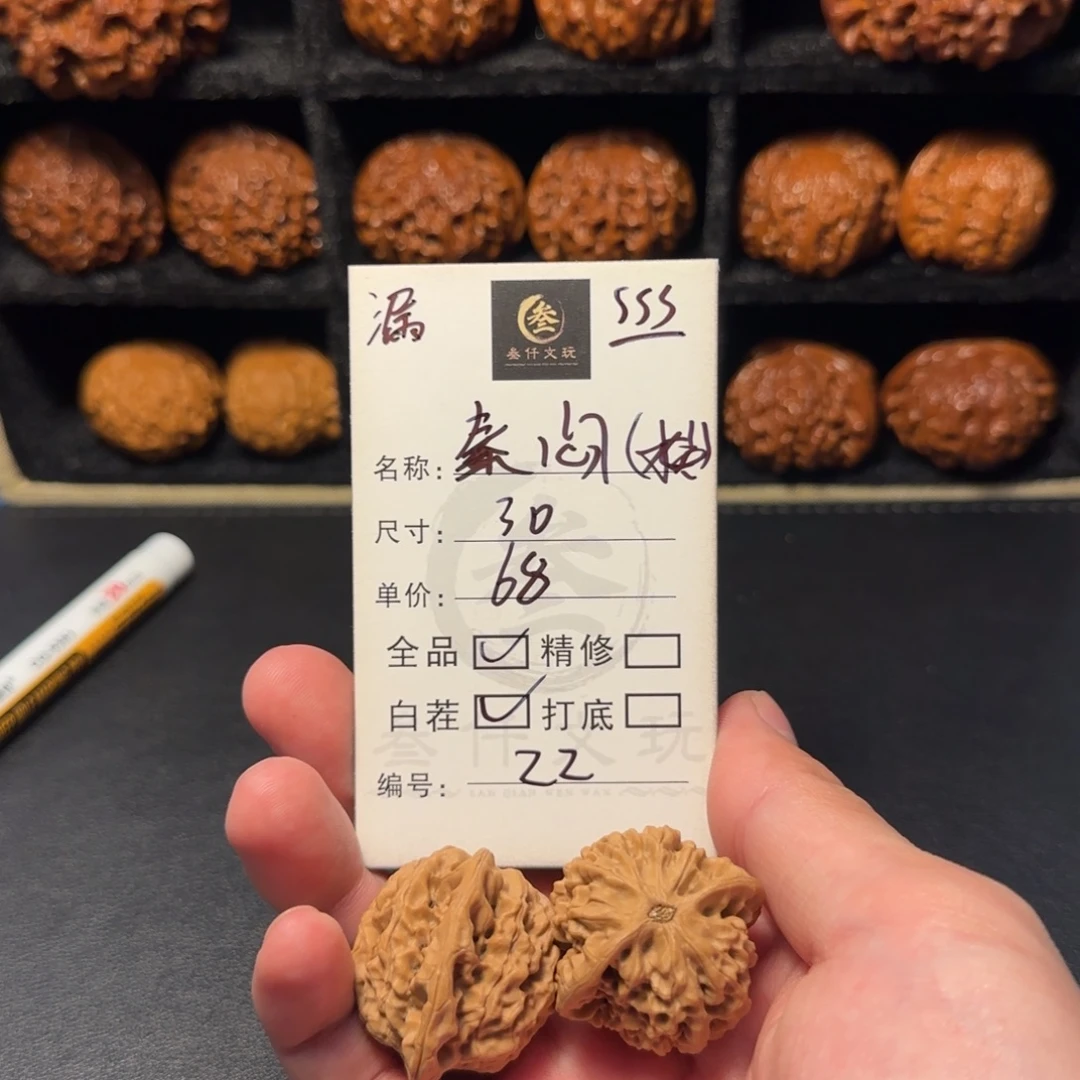 漏
SSS
叁
叁仟文玩
名称：秦
尺寸：30
单价：68
全品 ✓ 精修
白茬 ✓ 打底
叁仟文玩
编号：22
SAN QIAN WEN WAN